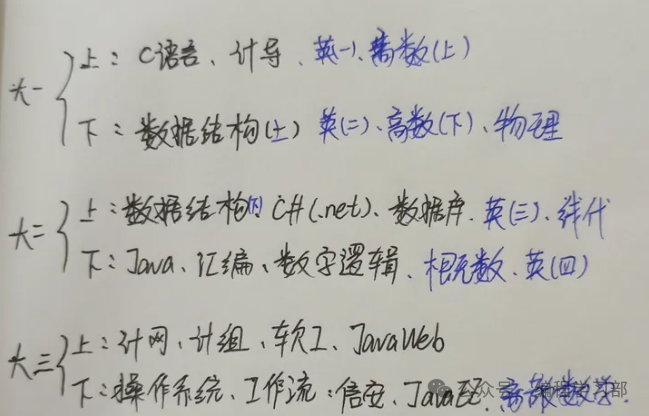 大一 上：C语言、计导、英(一)、高数(上)
下：数据结构(上) 英(二)、高数(下)、物理
大二 上：数据结构(下) C#(.net)、数据库、英(三)、线代
下：Java、汇编、数字逻辑、概充数、英(四)
大三 上：计网、计组、软工、JavaWeb
下：操作系统、工作流：信安、JavaEE 离散数学.
公众号